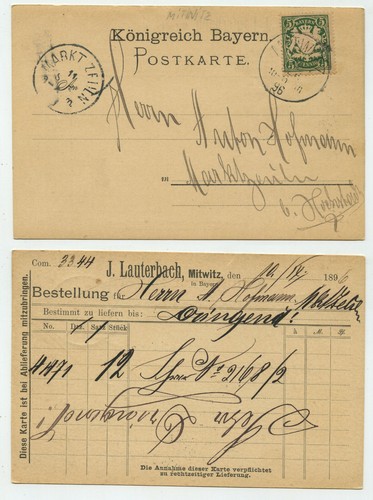 MITWITZ
Königreich Bayern.
POSTKARTE.
MARKT ZEULN
96
5 BAYERN 5
Herrn Anton Hofmann
in Marktzeuln
b. Hochstadt
Com. 3344
J. Lauterbach, Mitwitz, den 189
in Bayern
Bestellung für Herrn A. Hofmann,
Bestimmt zu liefern bis: Dringend!
No. Dtz. Satz/Stück h M. Pf.
4471 12 No 2168/2
Sehr Dringend!
Diese Karte ist bei Ablieferung mitzubringen.
Die Annahme dieser Karte verpflichtet
zu rechtzeitiger Lieferung.